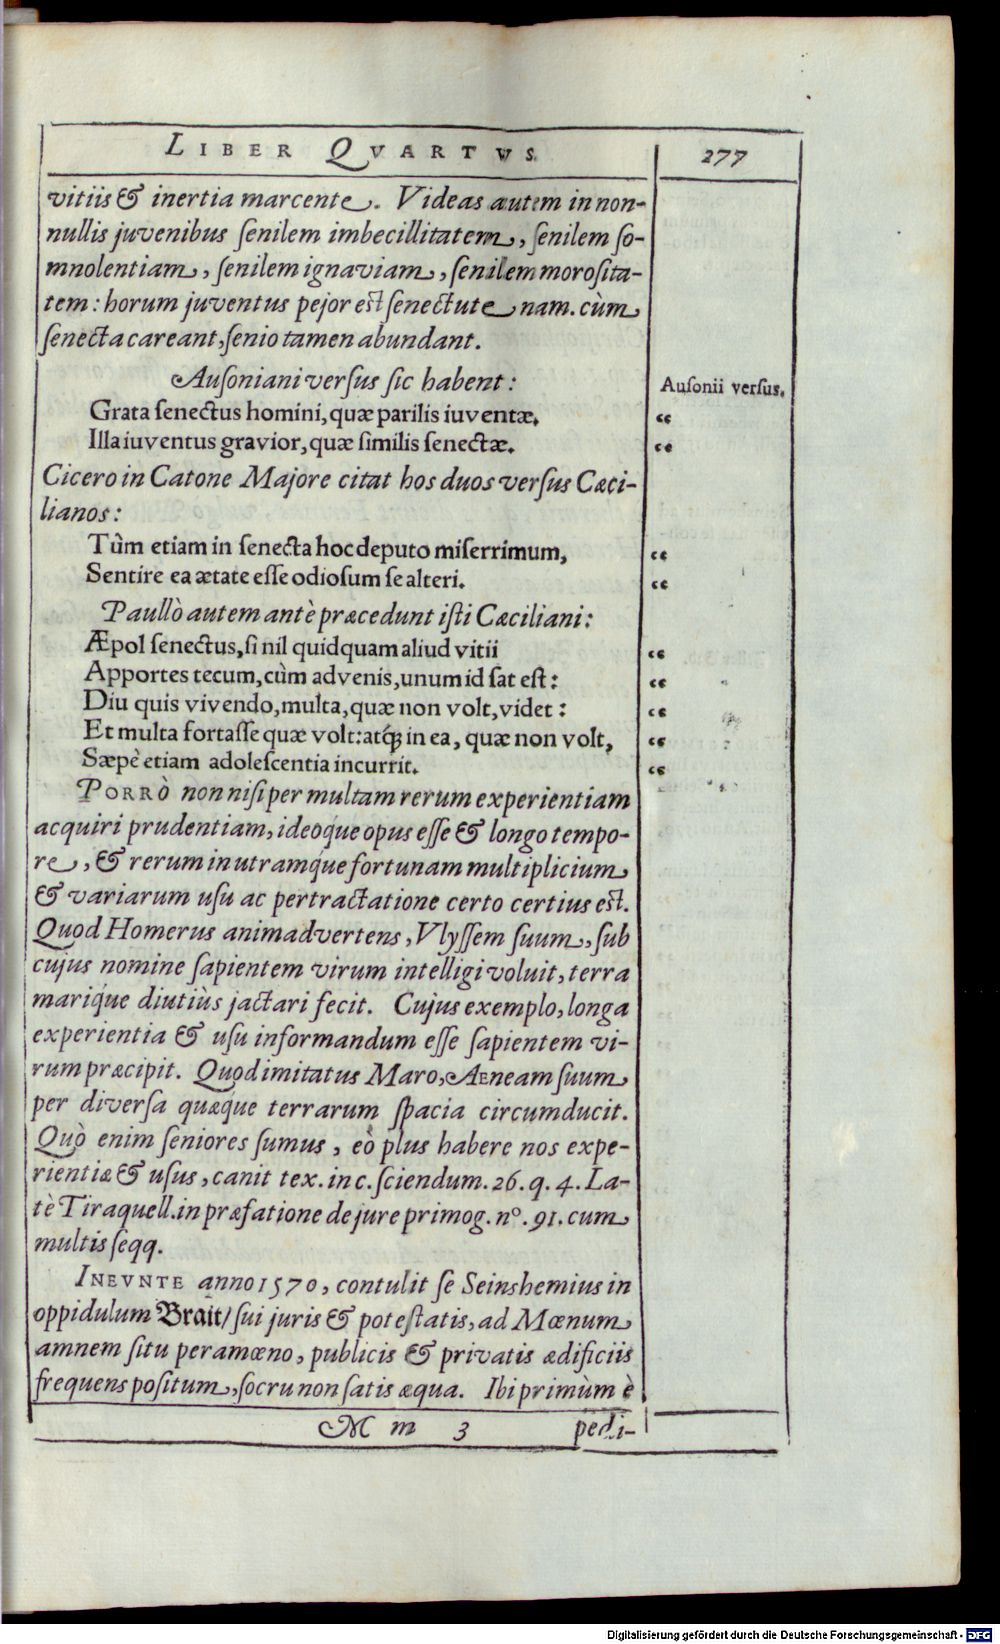 LIBER QVARTVS. 277
vitiis & inertia marcente. Videas autem in non-
nullis juvenibus ſenilem imbecillitatem, ſenilem ſo-
mnolentiam, ſenilem ignaviam, ſenilem moroſita-
tem: horum juventus pejor est ſenectute nam. cùm
ſenecta careant, ſenio tamen abundant.
Auſoniani verſus ſic habent:
Auſonii verſus.
Grata ſenectus homini, quæ parilis iuventæ.
“
Illa iuventus gravior, quæ ſimilis ſenectæ.
“
Cicero in Catone Majore citat hos duos verſus Cæci-
lianos:
Tùm etiam in ſenecta hoc deputo miſerrimum,
“
Sentire ea ætate eſſe odioſum ſe alteri.
“
Paullò autem antè præcedunt iſti Cæciliani:
Æpol ſenectus, ſi nil quidquam aliud vitii
“
Apportes tecum, cùm advenis, unum id ſat est:
“
Diu quis vivendo, multa, quæ non volt, videt:
“
Et multa fortaſſe quæ volt: atq́; in ea, quæ non volt,
“
Sæpè etiam adoleſcentia incurrit.
“
PORRÒ non niſi per multam rerum experientiam
acquiri prudentiam, ideoque opus eſſe & longo tempo-
re, & rerum in utramque fortunam multiplicium
& variarum uſu ac pertractatione certo certius est.
Quod Homerus animadvertens, Vlyſſem ſuum, ſub
cujus nomine ſapientem virum intelligi voluit, terra
marique diutiùs jactari fecit. Cujus exemplo, longa
experientia & uſu informandum eſſe ſapientem vi-
rum præcipit. Quod imitatus Maro, AEneam ſuum
per diverſa quæque terrarum ſpacia circumducit.
Quò enim ſeniores ſumus, eò plus habere nos expe-
rientiæ & uſus, canit tex. in c. ſciendum. 26. q. 4. La-
tè Tiraquell. in præfatione de jure primog. nº. 91. cum
multis ſeqq.
INEVNTE anno 1570, contulit ſe Seinshemius in
oppidulum Brait/ ſui juris & potestatis, ad Mœnum
amnem ſitu peramœno, publicis & privatis ædificiis
frequens poſitum, ſocru non ſatis æqua. Ibi primùm è
M m 3 pedi-
Digitalisierung gefördert durch die Deutsche Forschungsgemeinschaft - DFG